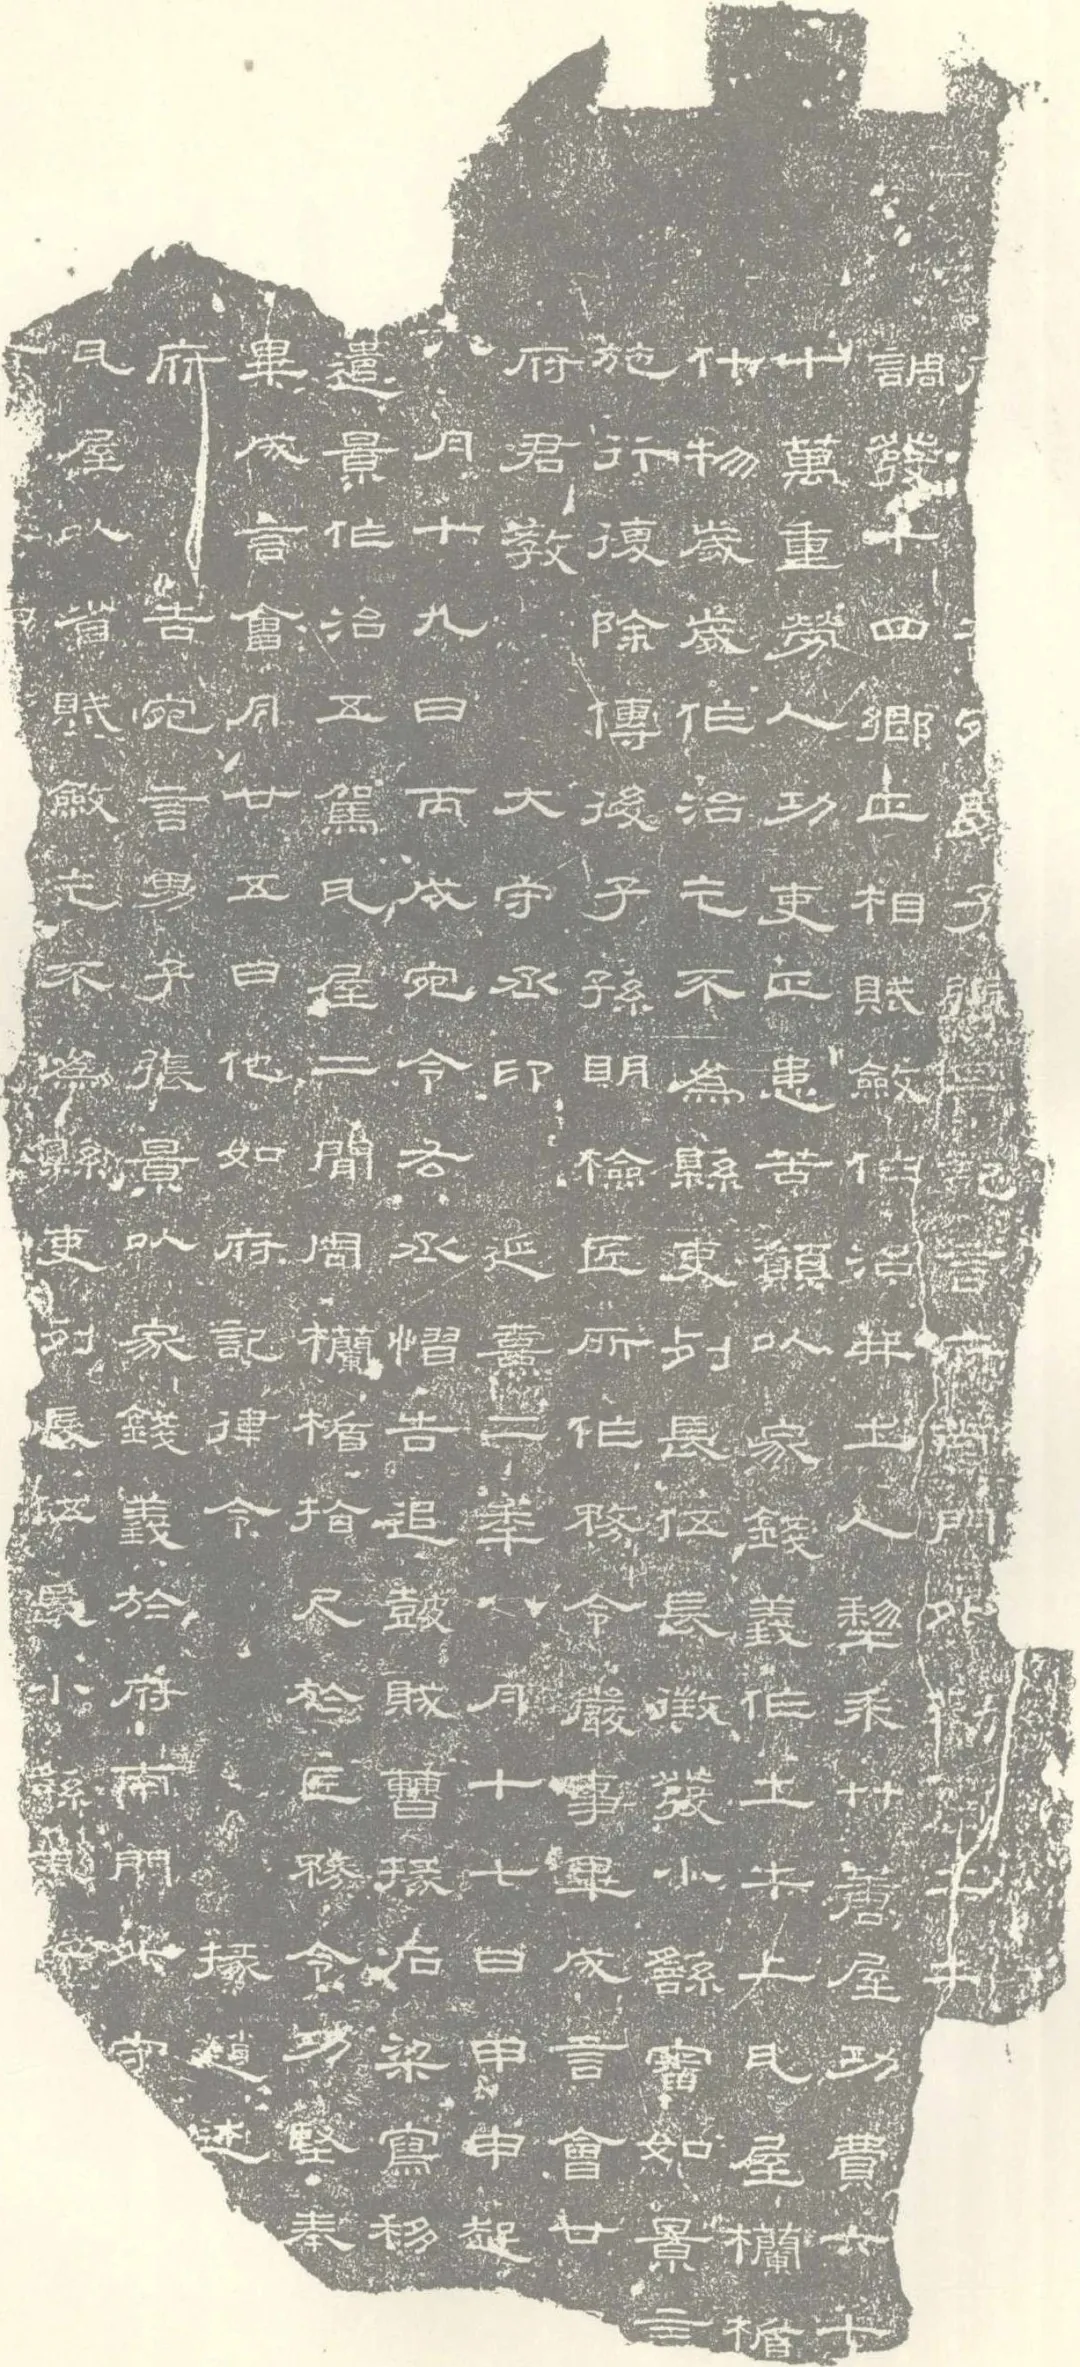 府告宛男子張景記言府南門外勸土牛
調發十四鄉正相賦斂作治并土人犁耒艹蓎屋功費六十
十萬重勞人功吏正患苦願以家錢義作土牛上瓦屋欄楯
什物歲歲作治乞不為縣吏列長伍長徵發小繇審如景言
施行復除傳後子孫明檢匠所作務令嚴事畢成言會廿
府君教　大守丞印　延熹二年八月十七日甲申起
八月十九日丙戌宛令右丞慴告追鼓賊曹掾石梁寫移
遣景作治五駕瓦屋二間周欄楯拾尺於匠務令功堅奉
畢成言會月廿五日他如府記律令　掾趙述
府告宛言男子張景以家錢義於府南門外守
瓦屋以省賦斂乞不為縣吏列長伍長小繇